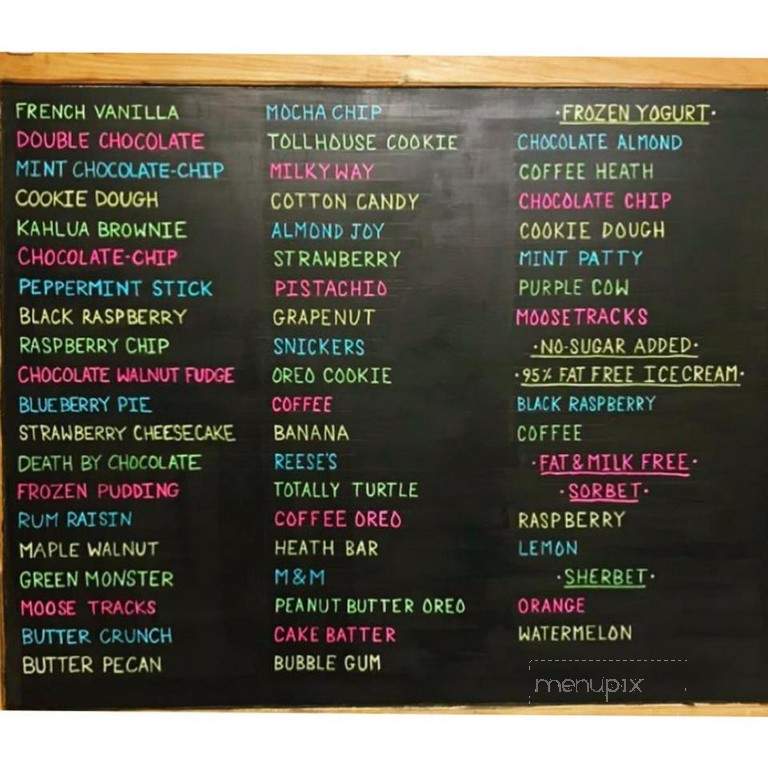 FRENCH VANILLA
DOUBLE CHOCOLATE
MINT CHOCOLATE-CHIP
COOKIE DOUGH
KAHLUA BROWNIE
CHOCOLATE-CHIP
PEPPERMINT STICK
BLACK RASPBERRY
RASPBERRY CHIP
CHOCOLATE WALNUT FUDGE
BLUEBERRY PIE
STRAWBERRY CHEESECAKE
DEATH BY CHOCOLATE
FROZEN PUDDING
RUM RAISIN
MAPLE WALNUT
GREEN MONSTER
MOOSE TRACKS
BUTTER CRUNCH
BUTTER PECAN
MOCHA CHIP
TOLLHOUSE COOKIE
MILKYWAY
COTTON CANDY
ALMOND JOY
STRAWBERRY
PISTACHIO
GRAPENUT
SNICKERS
OREO COOKIE
COFFEE
BANANA
REESE'S
TOTALLY TURTLE
COFFEE OREO
HEATH BAR
M&M
PEANUT BUTTER OREO
CAKE BATTER
BUBBLE GUM
·FROZEN YOGURT·
CHOCOLATE ALMOND
COFFEE HEATH
CHOCOLATE CHIP
COOKIE DOUGH
MINT PATTY
PURPLE COW
MOOSETRACKS
·NO-SUGAR ADDED·
·95% FAT FREE ICECREAM·
BLACK RASPBERRY
COFFEE
·FAT & MILK FREE·
·SORBET·
RASPBERRY
LEMON
·SHERBET·
ORANGE
WATERMELON
menupix